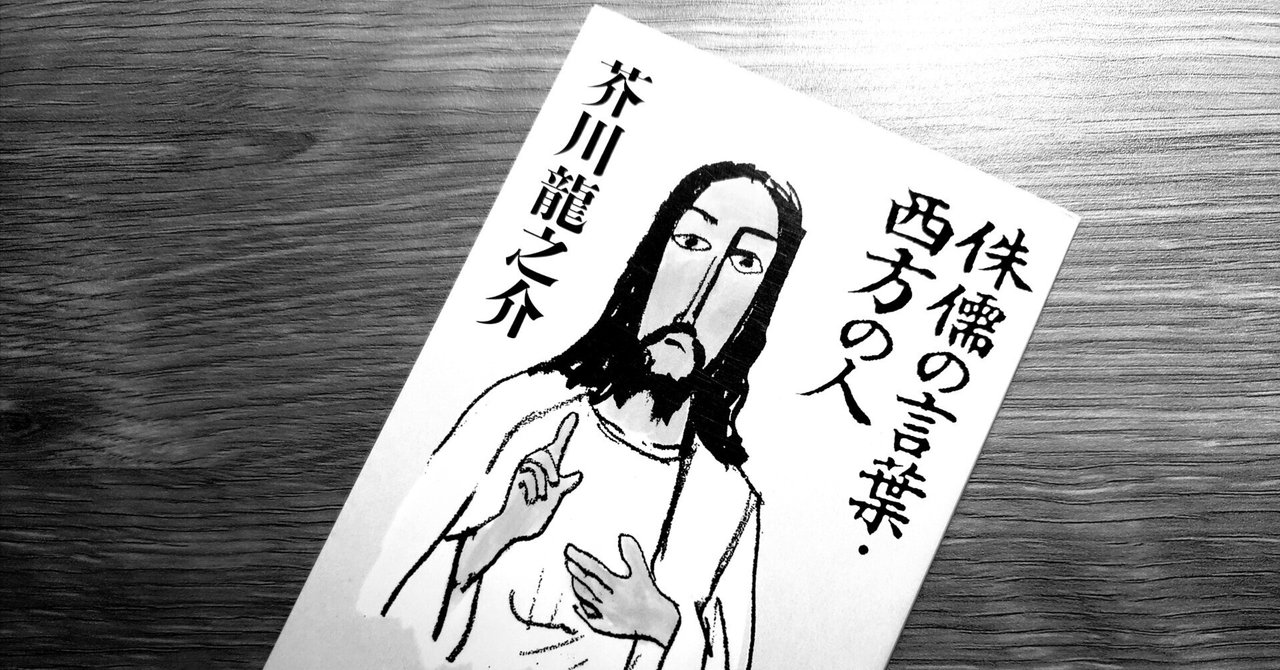 侏儒の言葉・
西方の人
芥川龍之介